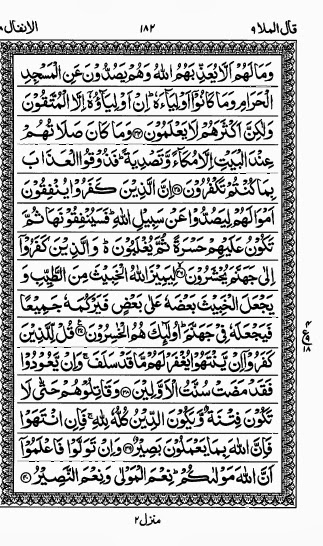 قال الملا ٩ ١٨٢ الانفال ٨
وَمَا لَهُمْ اَلَّا يُعَذِّبَهُمُ اللّٰهُ وَهُمْ يَصُدُّوْنَ عَنِ الْمَسْجِدِ
الْحَرَامِ وَمَا كَانُوْٓا اَوْلِيَآءَهٗ ؕ اِنْ اَوْلِيَآؤُهٗٓ اِلَّا الْمُتَّقُوْنَ
وَلٰكِنَّ اَكْثَرَهُمْ لَا يَعْلَمُوْنَ ﴿٣٤﴾ وَمَا كَانَ صَلَاتُهُمْ
عِنْدَ الْبَيْتِ اِلَّا مُكَآءً وَّتَصْدِيَةً ؕ فَذُوْقُوا الْعَذَابَ
بِمَا كُنْتُمْ تَكْفُرُوْنَ ﴿٣٥﴾ اِنَّ الَّذِيْنَ كَفَرُوْا يُنْفِقُوْنَ
اَمْوَالَهُمْ لِيَصُدُّوْا عَنْ سَبِيْلِ اللّٰهِ ؕ فَسَيُنْفِقُوْنَهَا ثُمَّ
تَكُوْنُ عَلَيْهِمْ حَسْرَةً ثُمَّ يُغْلَبُوْنَ ؕ وَالَّذِيْنَ كَفَرُوْٓا
اِلٰى جَهَنَّمَ يُحْشَرُوْنَ ﴿٣٦﴾ لِيَمِيْزَ اللّٰهُ الْخَبِيْثَ مِنَ الطَّيِّبِ وَ
يَجْعَلَ الْخَبِيْثَ بَعْضَهٗ عَلٰى بَعْضٍ فَيَرْكُمَهٗ جَمِيْعًا
فَيَجْعَلَهٗ فِيْ جَهَنَّمَ ؕ اُولٰٓئِكَ هُمُ الْخٰسِرُوْنَ ﴿٣٧﴾ قُلْ لِّلَّذِيْنَ
كَفَرُوْٓا اِنْ يَّنْتَهُوْا يُغْفَرْ لَهُمْ مَّا قَدْ سَلَفَ ۚ وَاِنْ يَّعُوْدُوْا
فَقَدْ مَضَتْ سُنَّتُ الْاَوَّلِيْنَ ﴿٣٨﴾ وَقَاتِلُوْهُمْ حَتّٰى لَا
تَكُوْنَ فِتْنَةٌ وَّيَكُوْنَ الدِّيْنُ كُلُّهٗ لِلّٰهِ ۚ فَاِنِ انْتَهَوْا
فَاِنَّ اللّٰهَ بِمَا يَعْمَلُوْنَ بَصِيْرٌ ﴿٣٩﴾ وَاِنْ تَوَلَّوْا فَاعْلَمُوْٓا
اَنَّ اللّٰهَ مَوْلٰىكُمْ ؕ نِعْمَ الْمَوْلٰى وَنِعْمَ النَّصِيْرُ ﴿٤٠﴾
منزل ٢